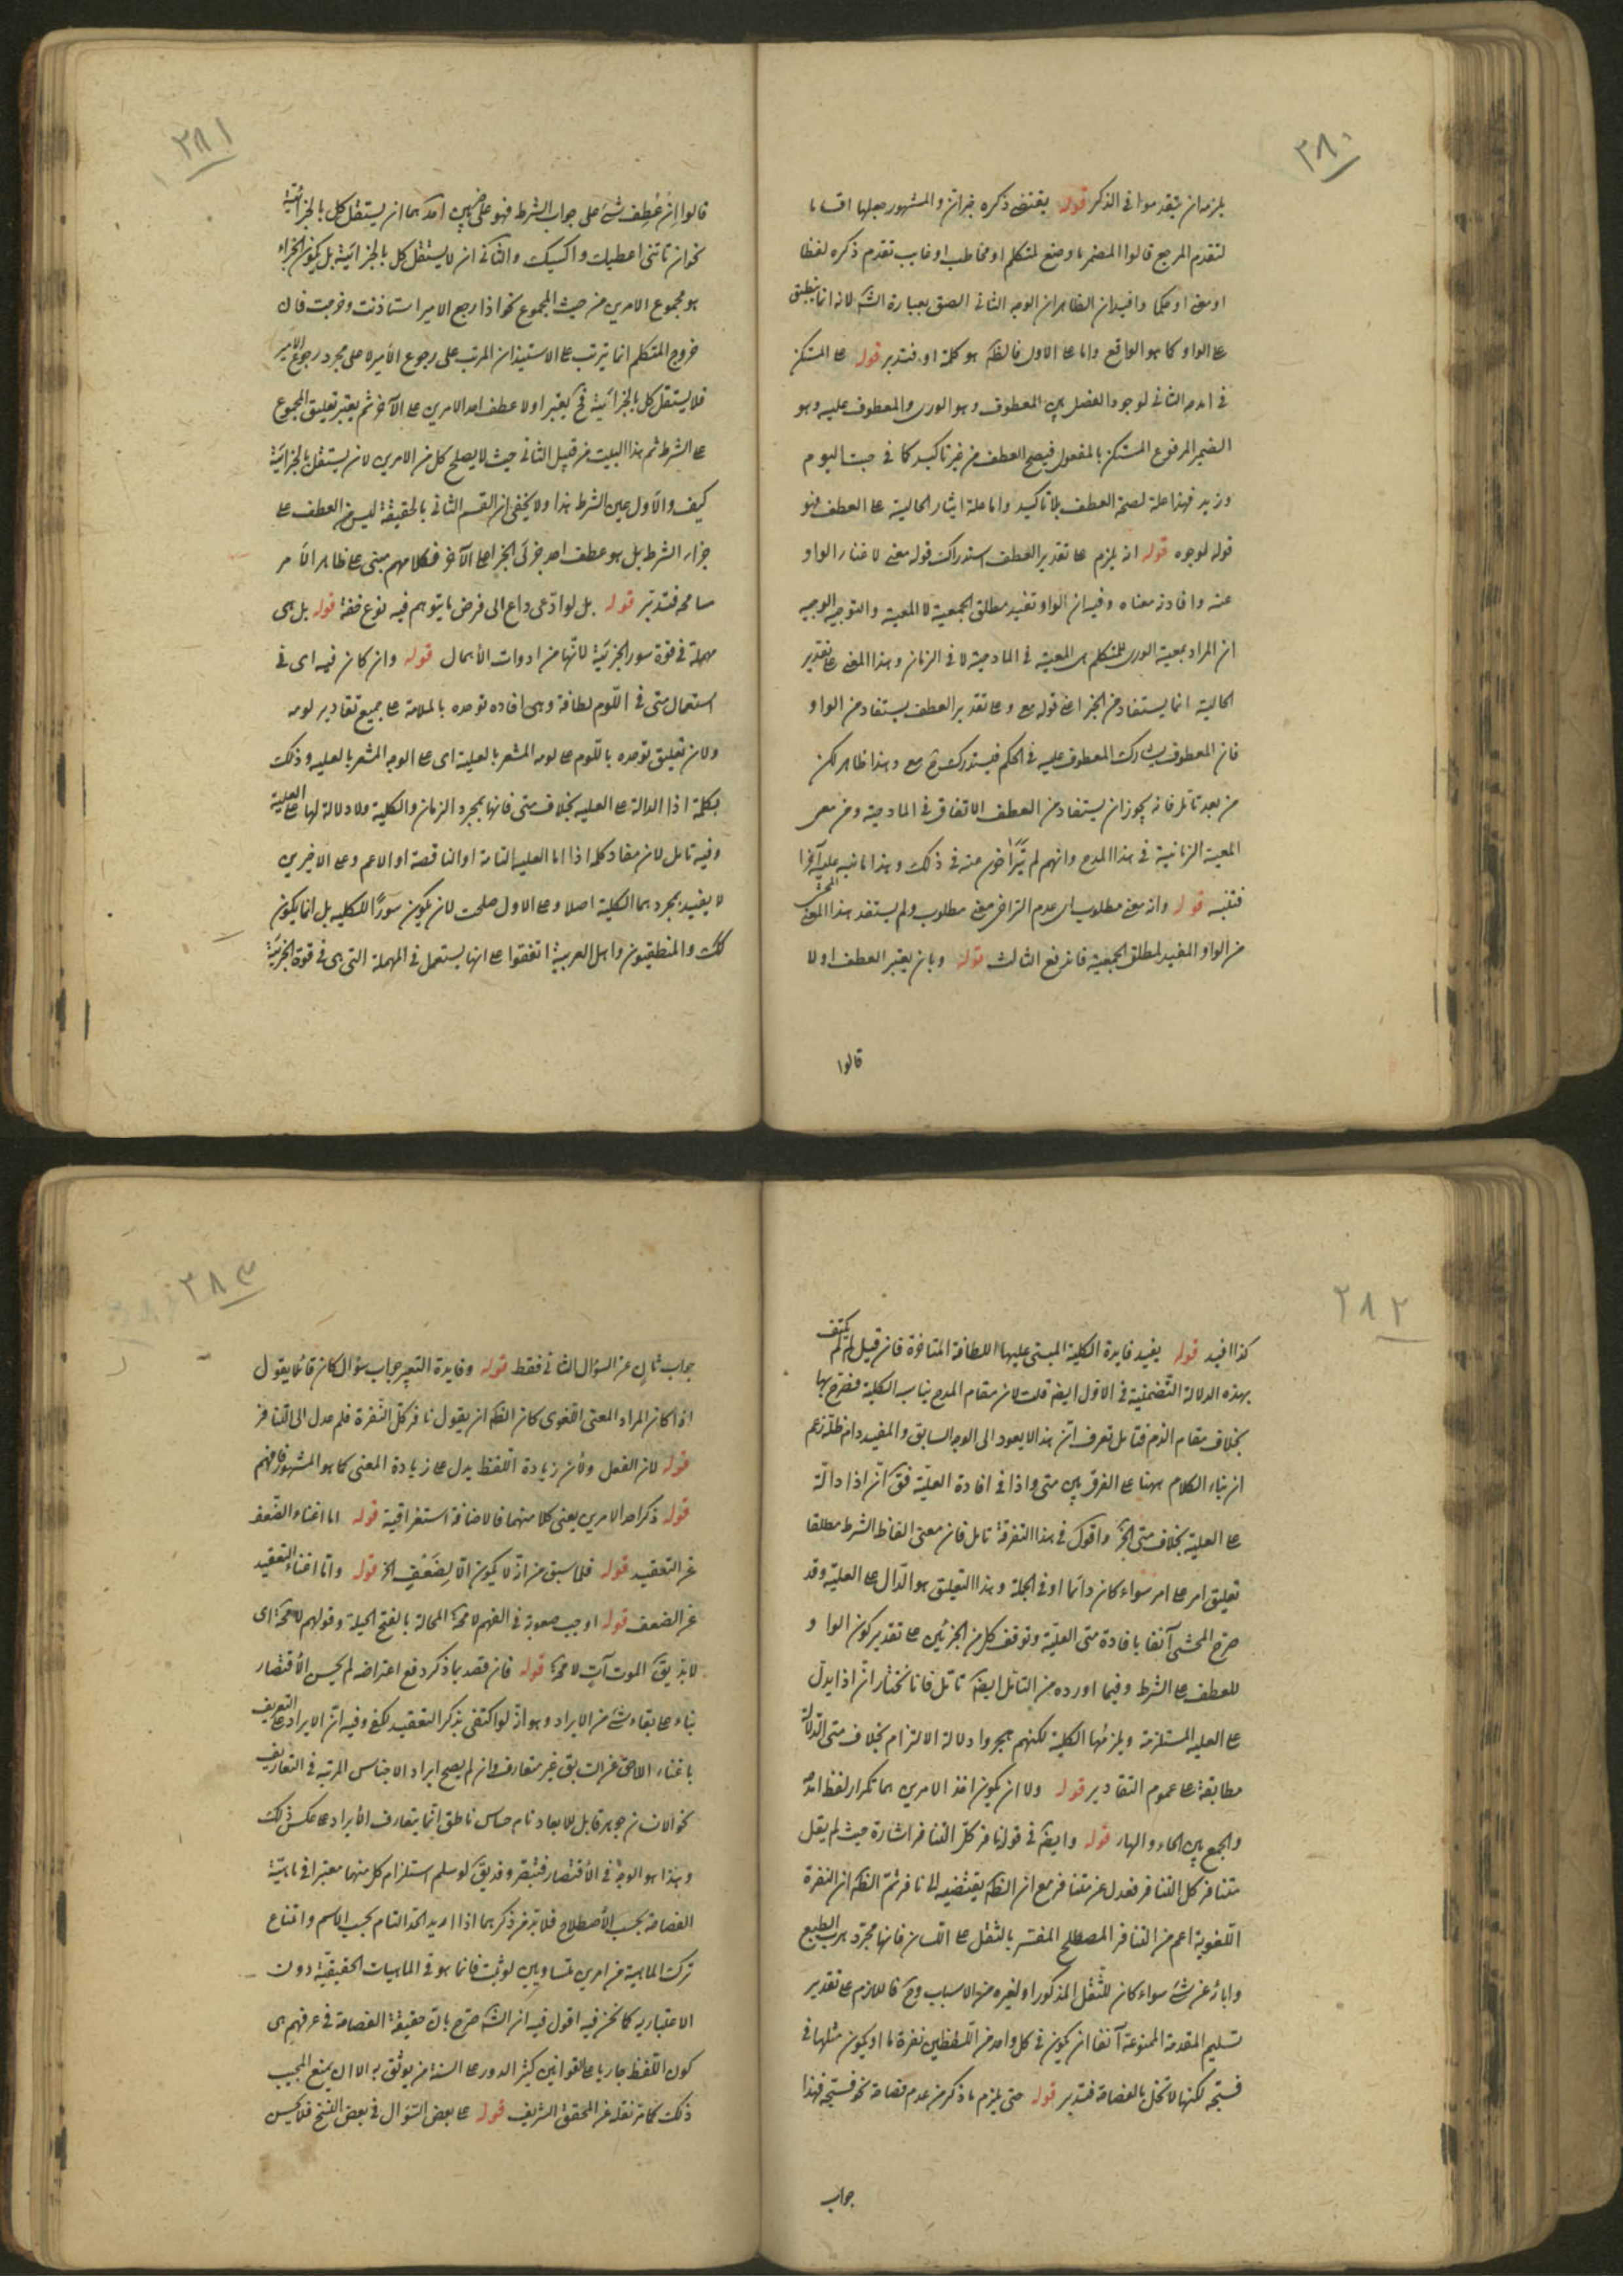 ٢٨٠
يلزم ان يتقدموا في الذكر قوله يقتضي ذكره خبران والمشهور جعلها اقساما
لتقدم المرجع قالوا المضمر ما وضع لمتكلم او مخاطب او غايب تقدم ذكره لفظا
او معنى او حكما وافيد ان الظاهر ان الوجه الثاني الصق بعبارة الش لانه انما ينطبق
على الواو كما هو الواقع واما على الاول فالظ هو كلمة او فتدبر قوله على المستكن
في امدحه الثاني لوجود الفصل بين المعطوف وهو الورى والمعطوف عليه وهو
الضمير المرفوع المستكن بالمفعول فيصح العطف من غير تاكيد كما في جئت اليوم
وزيد فهذا علة لصحة العطف بلا تاكيد واما علة ايثار الحالية على العطف فهو
قوله لوجوه قوله انه يلزم على تقدير العطف استدراك قوله معي لاغناء الواو
عنه وافادته معناه وفيه ان الواو تفيد مطلق الجمعية لا المعية والتوجيه الوجيه
ان المراد بمعية الورى للمتكلم هي المعية في المادحية لا في الزمان وهذا المعنى على تقدير
الحالية انما يستفاد من الخبر اعني قوله معي وعلى تقدير العطف يستفاد من الواو
فان المعطوف يشارك المعطوف عليه في الحكم فيستدرك ح معي وهذا ظاهر لكن
من بعد تامل فانه يجوز ان يستفاد من العطف الاتفاق في المادحية ومن معي
المعية الزمانية في هذا المدح وانهم لم يتراخوا عنه في ذلك وهذا ما نبه عليه آخرا
فتنبه قوله وانه معنى مطلوب اي عدم التراخي معنى مطلوب ولم يستفد هذا المعنى المحشي
من الواو المفيد لمطلق الجمعية فاندفع الثالث قوله وبان يعتبر العطف اولا
قالوا
٢٨١
قالوا ان عطف شئ على جواب الشرط فهو على ضربين احدهما ان يستقل كل بالجزائية
نحو ان تاتني اعطيك واكسيك والثاني ان لا يستقل كل بالجزائية بل يكون الجزاء
هو مجموع الامرين من حيث المجموع نحو اذا رجع الامير استاذنت وخرجت فان
خروج المتكلم انما يترتب على الاستيذان المرتب على رجوع الامير لا على مجرد رجوع الامير
فلا يستقل كل بالجزائية فح يعتبر اولا عطف احد الامرين على الآخر ثم يعتبر تعليق المجموع
على الشرط ثم هذا البيت من قبيل الثاني حيث لا يصلح كل من الامرين لان يستقل بالجزائية
كيف والاول عين الشرط هذا ولا يخفى ان القسم الثاني بالحقيقة ليس من العطف على
جزاء الشرط بل هو عطف احد جزئي الجزاء على الآخر فكلامهم مبنى على ظاهر الامر
مسامحة فتدبر قوله بل لو ادعى داع الى فرض ما يتوهم فيه نوع خفة قوله بل هي
مهملة في قوة سور الجزئية لانها من ادوات الاهمال قوله وان كان فيه اى في
استعمال متى في اللوم لطافة وهي افاده توحده بالملامة على جميع تقادير لومه
ولان تعليق توحده باللوم على لومه المشعر بالعلية اى على الوجه المشعر بالعليه وذلك
بكلمة اذا الدالة على العليه بخلاف متى فانها بمجرد الزمان والكلية ولا دلالة لها على العلية
وفيه تامل لان مفاد كلمه اذا اما العليه التامة او الناقصة او الاعم وعلى الاخيرين
لا يفيد بمجردهما الكلية اصلا وعلى الاول صلحت لان يكون سورا للكليه بل انما يكون
كك والمنطقيون واهل العربية اتفقوا على انها يستعمل في المهملة التي هي في قوة الجزئية
٢٨٢
كذا افيد قوله يفيد فايدة الكلية المبتنى عليها اللطافة المتاخرة فان قيل لم لم يكتف
بهذه الدلالة التضمنية في الاول ايضا قلت لان مقام المدح يناسبه الكلية فصرح بها
بخلاف مقام الذم فتامل تعرف ان هذا لا يعود الى الوجه السابق والمفيد دام ظله زعم
ان بناء الكلام ههنا على الفرق بين متى واذا في افادة العلية فق ان اذا دالة
على العلية بخلاف متى الخ واقول في هذا التفرقة تامل فان معنى الفاظ الشرط مطلقا
تعليق امر على امر سواء كان دائما او في الجملة وهذا التعليق هو الدال على العلية وقد
صرح المحشي آنفا بافادة متى العلية وتوقف كل من الجزئين على تقدير كون الواو
للعطف على الشرط وفيما اورده من التامل ايضا تامل فانا نختار ان اذا يدل
على العليه المستلزمة ويلزمها الكلية لكنهم هجروا دلالة الالتزام بخلاف متى الدالة
مطابقة على عموم التقادير قوله ولا ان يكون اخذ الامرين هما تكرار لفظ امدحه
والجمع بين الحاء والهاء قوله وايضا في قوله نافر كل التنافر اشارة حيث لم يقل
متنافر كل التنافر فعدل عن متنافر مع ان الظ يقتضيه الى نافر ثم الظ ان النفرة
اللغوية اعم من التنافر المصطلح المفسر بالثقل على اللسان فانها مجرد هرب الطبع
واباؤه عن شئ سواء كان للثقل المذكور او لغيره من الاسباب وح فاللازم على تقدير
تسليم المقدمة الممنوعة آنفا ان يكون في كل واحد من اللفظين نفرة ما او يكون مثلها في
فسبحه لكنها لا تخل بالفصاحة فتدبر قوله حتى يلزم ما ذكر من عدم فصاحة نحو فسبحه فهذا
جواب
٢٨٣
جواب ثان عن السؤال الثاني فقط قوله وفايدة التعبير جواب سؤال كان قائلا يقول
اذا كان المراد المعنى اللغوى كان الظ ان يقول نافر كل النفرة فلم عدل الى التنافر
قوله لان الفعل ولان زيادة اللفظ يدل على زيادة المعنى كما هو المشهور فافهم
قوله ذكر احد الامرين يعنى كلا منهما فالاضافة استغراقية قوله اما اغناء الضعف
عن التعقيد قوله فلما سبق من انه لا يكون الا لضعف الخ قوله واما اغناء التعقيد
عن الضعف قوله اوجب صعوبة في الفهم لا محالة المحالة بالفتح الحيلة وقولهم لا محالة اى
لابد يق الموت آت لا محالة قوله فان قصد بما ذكر دفع اعتراضه لم يحسن الاقتصار
بناء على بقاء شئ من الايراد وهو انه لو اكتفى بذكر التعقيد لكفى وفيه ان الايراد على التعريف
باغناء اللاحق عن السابق غير متعارف وان لم يصح ايراد الاجناس المرتبه في التعاريف
نحو الانسان جوهر قابل للابعاد نام حساس ناطق انما يتعارف الايراد على عكس ذلك
وهذا هو الوجه في الاقتصار فتبصر وقد يق لو سلم استلزام كل منهما معتبرا في ماهية
الفصاحة بحسب الاصطلاح فلابد من ذكرهما اذا اريد الحد التام بحسب الاسم وامتناع
تركب الماهية من امرين متساويين لو ثبت فانما هو في الماهيات الحقيقية دون
الاعتباريه كما نحن فيه اقول فيه ان الش صرح بان حقيقة الفصاحة في عرفهم هي
كون اللفظ جاريا على القوانين كثير الدور على السنة من يوثق به الا ان يمنع المجيب
ذلك كما مر نقله عن المحقق الشريف قوله على بعض السؤال في بعض النسخ فلا يحسن